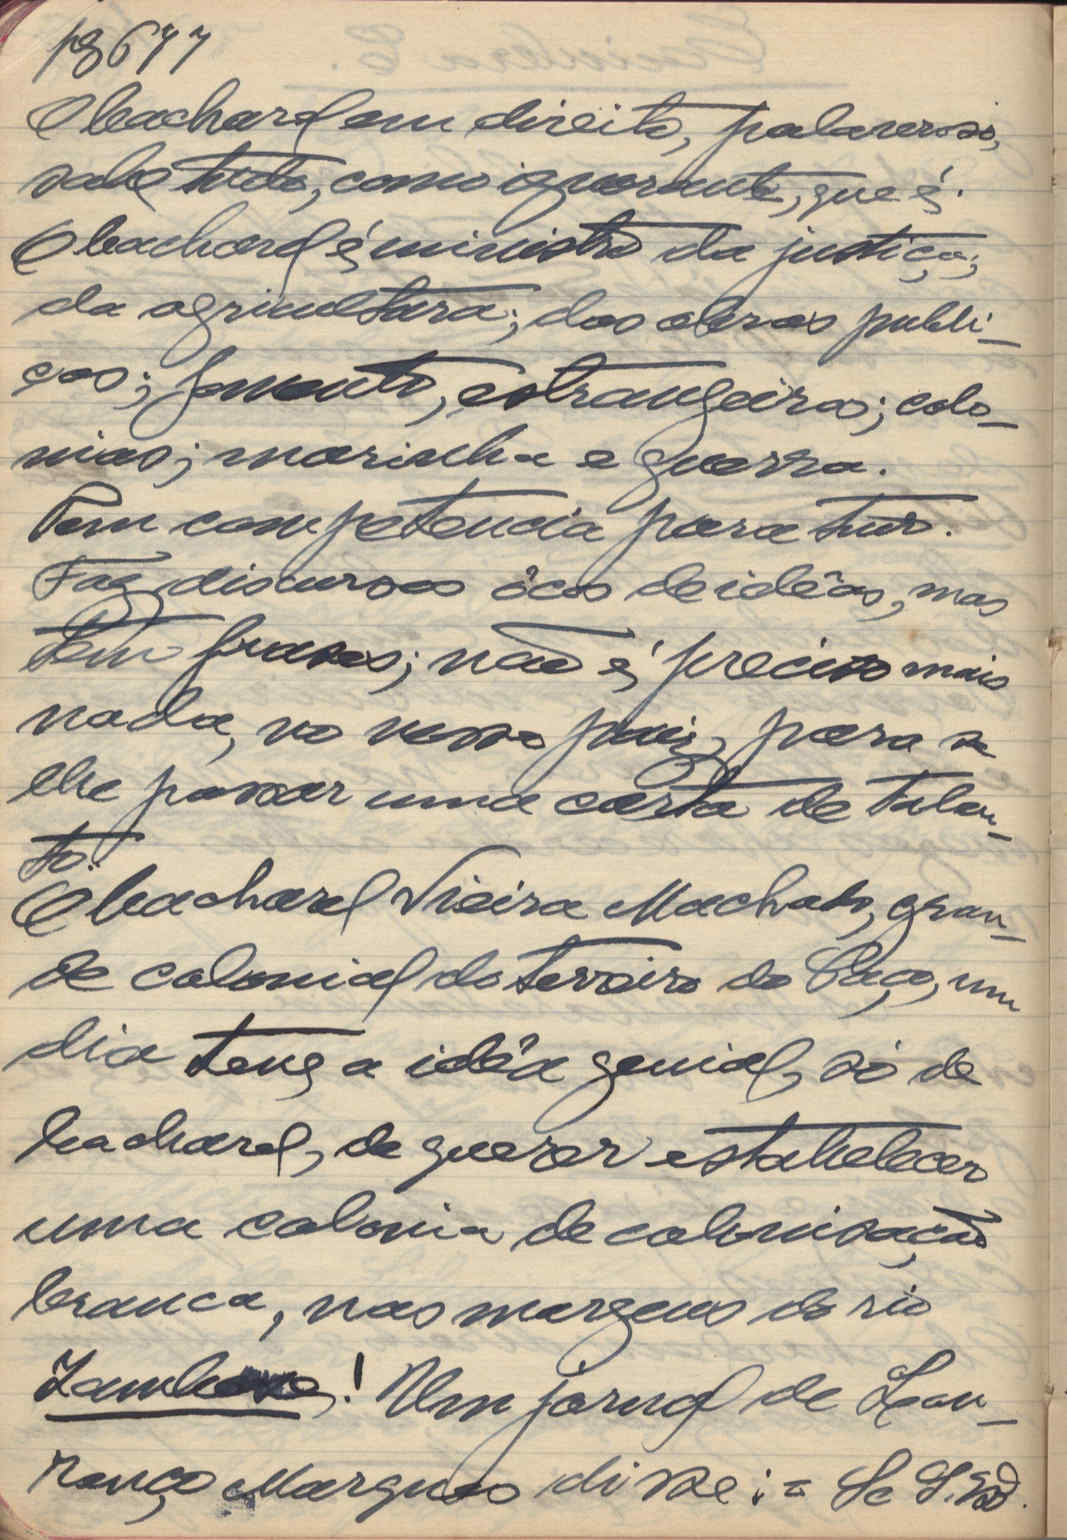 pg 677
O bacharel em direito, palavroso,
sabe tudo, como ignorante, que é.
O bacharel é ministro da justiça;
da agricultura; das obras publi-
cas; fomento, estrangeiros; colo-
nias; marinha e guerra.
Tem competencia para tudo.
Faz discursos ôcos de idêas, mas
tem frases; não é preciso mais
nada, no nosso paiz, para se
lhe passar uma carta de talen-
to.
O bacharel Vieira Machado, gran-
de colonial do terreiro do Paço, um
dia teve a idêa genial, só de
bacharel, de querer estabelecer
uma colonia de colonisação
branca, nas margens do rio
Zambeze! Um jornal de Lou-
renço Marques disse := Se S. Exª.